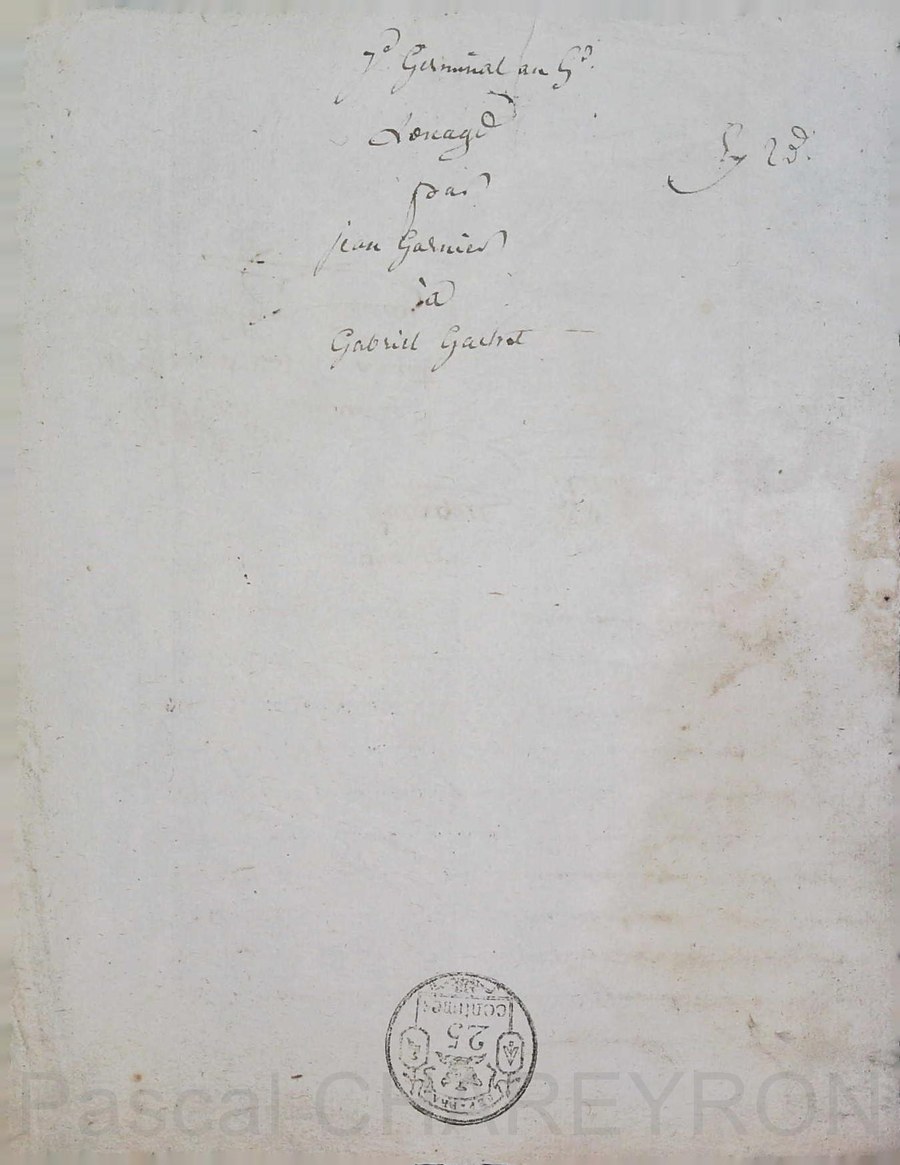 7e Germinal an 9e
Loüage
par
jean Garnier
à
Gabriel Gachet
25
centimes
Pascal CHAREYRON